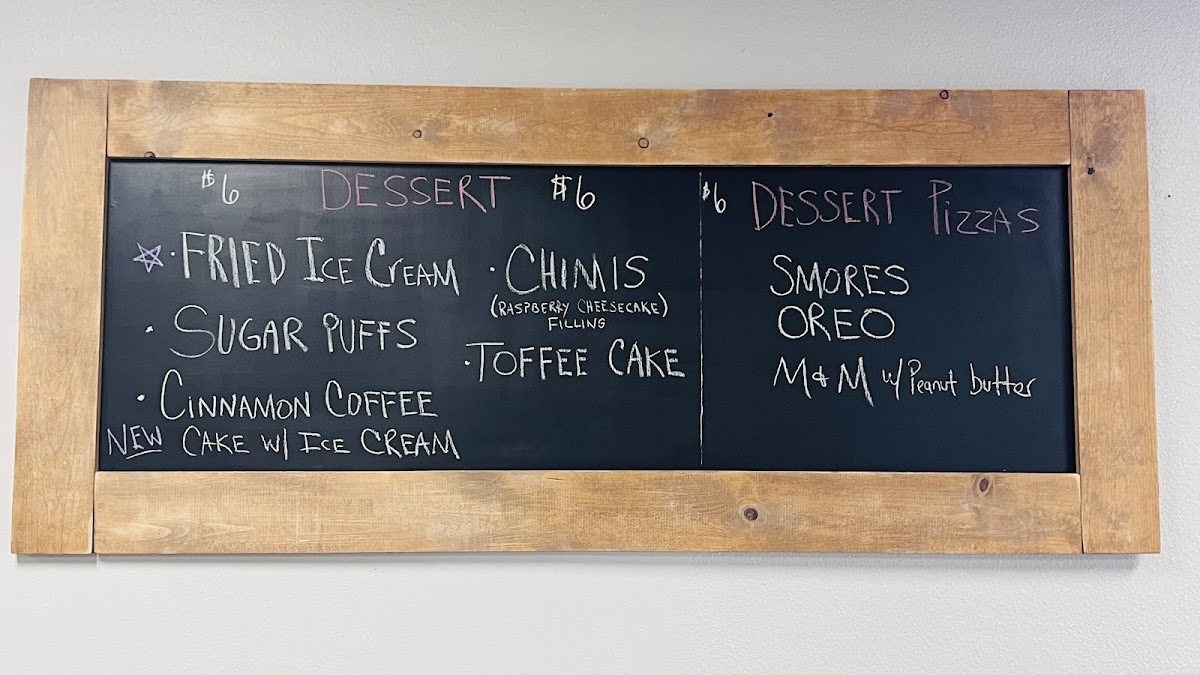 $6 DESSERT $6
· FRIED ICE CREAM
· SUGAR PUFFS
· CINNAMON COFFEE
NEW CAKE W/ ICE CREAM
· CHIMIS
(RASPBERRY CHEESECAKE)
FILLING
· TOFFEE CAKE
$6 DESSERT PIZZAS
SMORES
OREO
M&M w/ Peanut butter